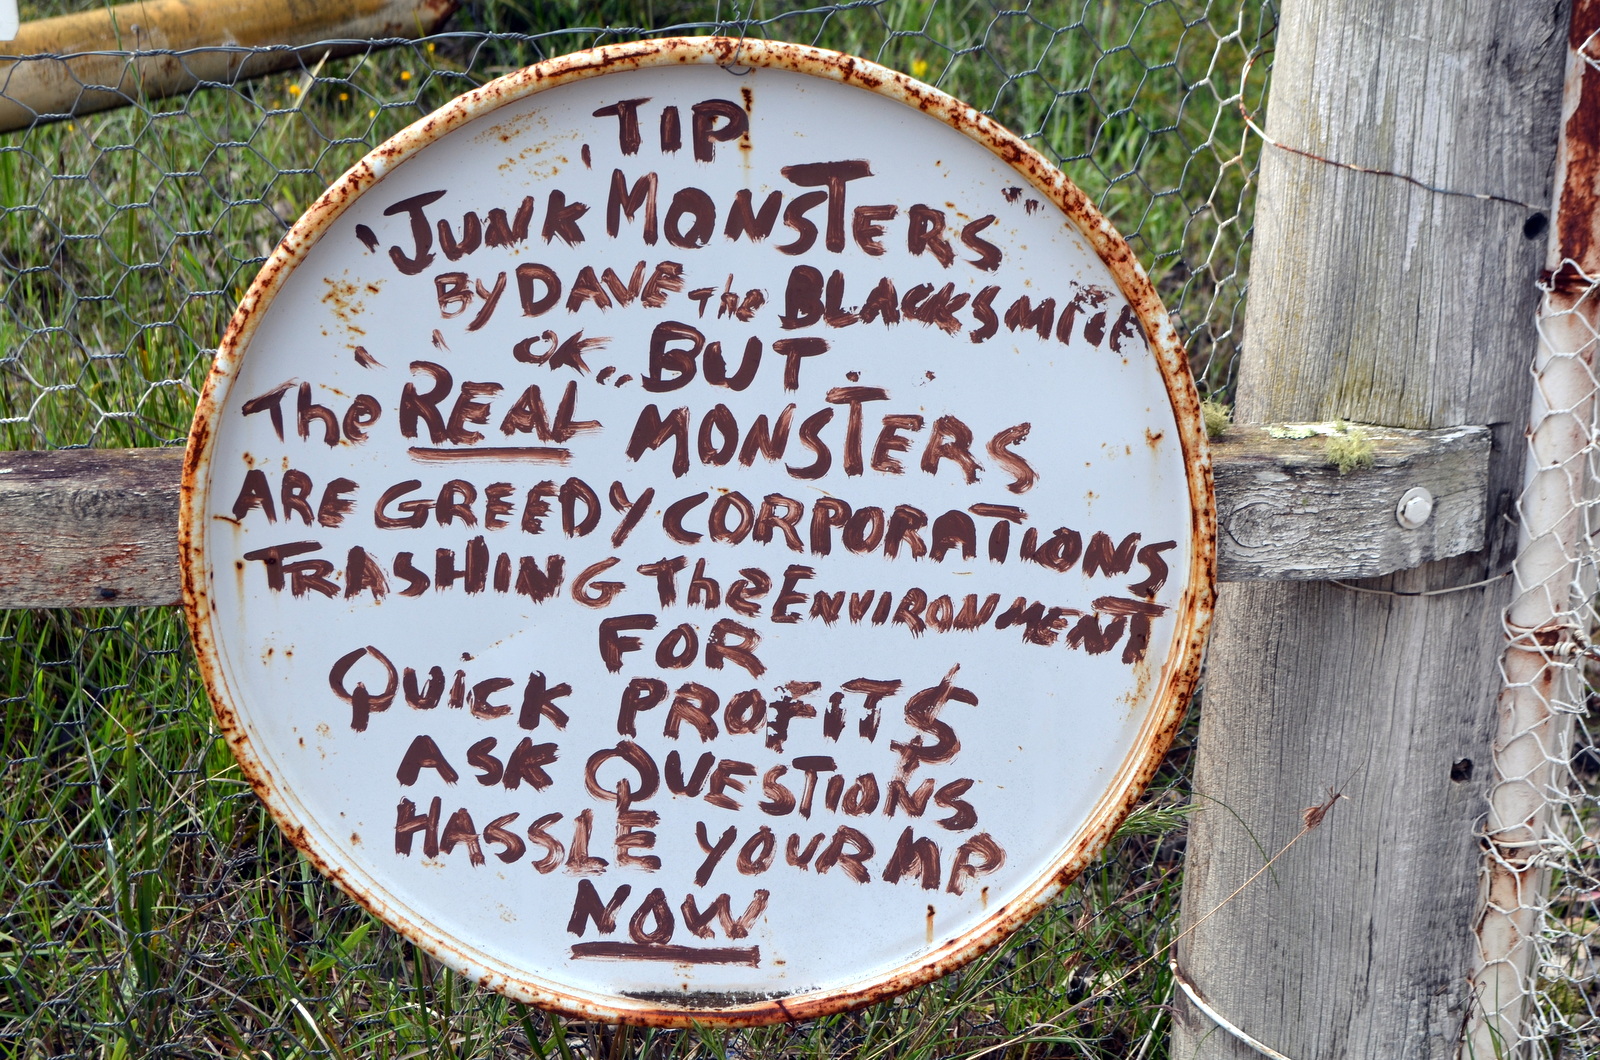 TIP
JUNK MONSTERS
BY DAVE The BLACKSMITH
OK.. BUT
The REAL MONSTERS
ARE GREEDY CORPORATIONS
TRASHING The ENVIRONMENT
FOR
QUICK PROFIT$
ASK QUESTIONS
HASSLE YOUR MP
NOW